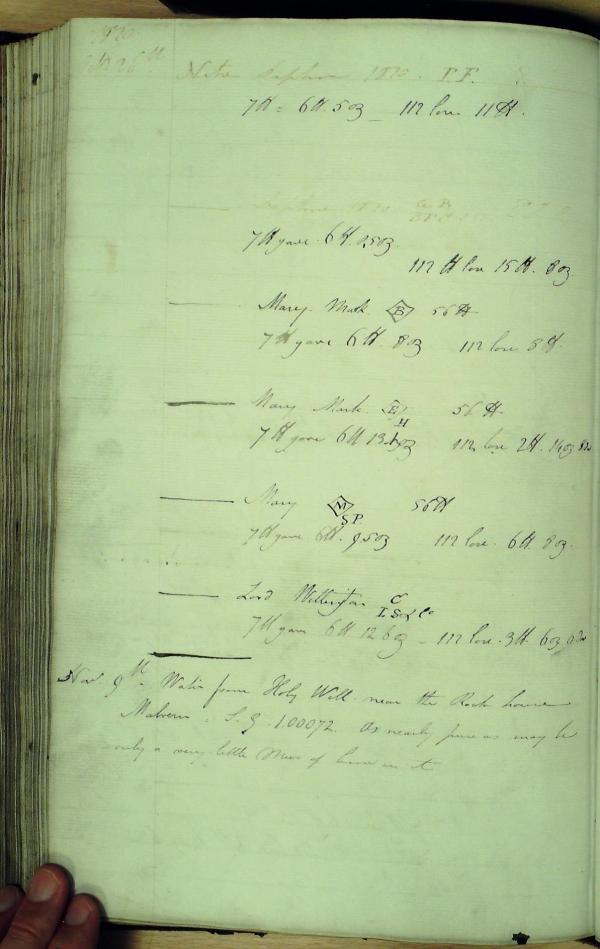 1820
26th
Nitre 1820. P.F.
7 lb = 6 lb. 5 oz _ 112 lose 11 lb.
1820
7 lb gave 6 lb. 0,5 oz
112 lb lose 15 lb. 8 oz
Mary. Mark B 56 lb
7 lb gave 6 lb. 8 oz 112 lose 8 lb.
Mary Mark. E H 56 lb.
7 lb gave 6 lb 13 oz 112 lose 2 lb. 14 oz
Mary M SP 56 lb
7 lb gave 6 lb. 9,5 oz 112 lose. 6 lb. 8 oz.
Lord Wellington C I.S & Co
7 lb gave 6 lb 12 6 oz _ 112 lose. 3 lb 6 oz
Nov. 9th. Water from Holy Well near the Rock house
Malvern. S. g. 1.00072. As nearly pure as may be
only a very little of lime in it